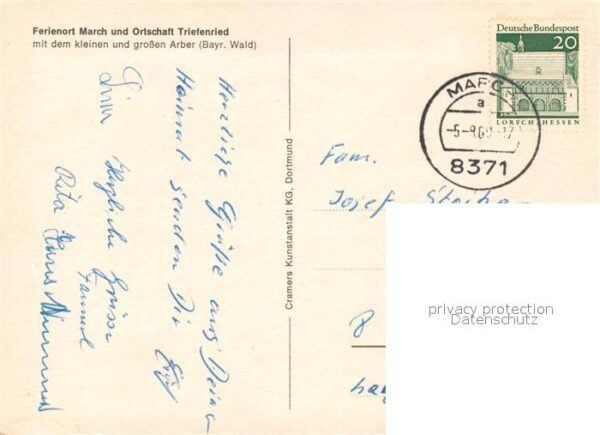 Ferienort March und Ortschaft Triefenried
mit dem kleinen und großen Arber (Bayr. Wald)
Herzliche Grüße aus Deiner
Heimat senden Dir
Herzliche Grüsse
Rita
Cramers Kunstanstalt KG, Dortmund
Deutsche Bundespost
20
LORSCH/HESSEN
MARCH
a
-5-9.69-17
8371
Fam.
Josef
privacy protection
Datenschutz